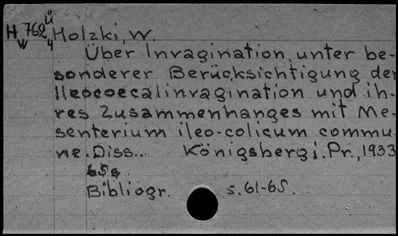 H 762 Holzki, W.
Über Invagination, unter be-
sonderer Berücksichtigung der
Ileocoecalinvagination und ih-
res Zusammenhanges mit Me-
senterium ileo-colicum commu-
ne. Diss.. Königsberg i. Pr., 1933
65s
Bibliogr. s. 61-65.